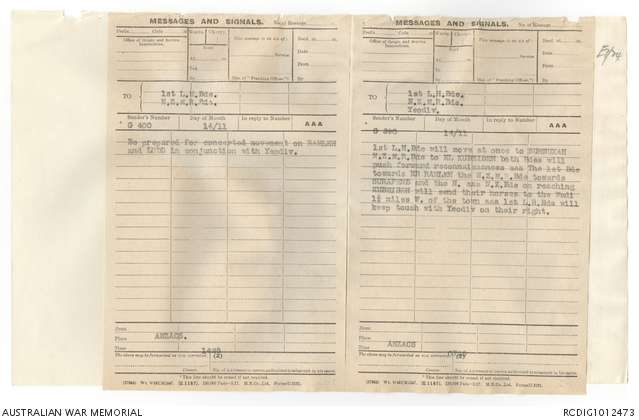 MESSAGES AND SIGNALS.
No. of Message
Prefix Code Words Charge
Office of Origin and Service Instructions.
Sent
This message is on a/c of:
Service
Recd. at
Date
From
By
TO
1st L.H.Bde.
N.Z.M.R.Bde.
Sender's Number
Day of Month
In reply to Number
AAA
G 400
14/11
Be prepared for concerted movement on RAMLEH
and LUDD in conjunction with Yeodiv.
From
Place
ANZACS.
Time
The above may be forwarded as now corrected.
(Z)
Censor.
* This line should be erased if not required.
MESSAGES AND SIGNALS.
No. of Message
Prefix Code Words Charge
Office of Origin and Service Instructions.
Sent
This message is on a/c of:
Service
Recd. at
Date
From
By
TO
1st L.H.Bde.
N.Z.M.R.Bde.
Yeodiv.
Sender's Number
Day of Month
In reply to Number
AAA
14/11
1st L.H.Bde will move at once to
N.Z.M.R.Bde to EL both Bdes will
push forward reconnaissances aaa The 1st Bde
towards ER RAMLEH the N.Z.M.R.Bde towards
SURAFEND and the N. on reaching
will send their horses to the Wadi
miles W. of the town aaa 1st L.H.Bde will
keep touch with Yeodiv on their right.
From
Place
ANZACS
Time
The above may be forwarded as now corrected.
(Z)
Censor.
* This line should be erased if not required.
AUSTRALIAN WAR MEMORIAL
RCDIG1012473